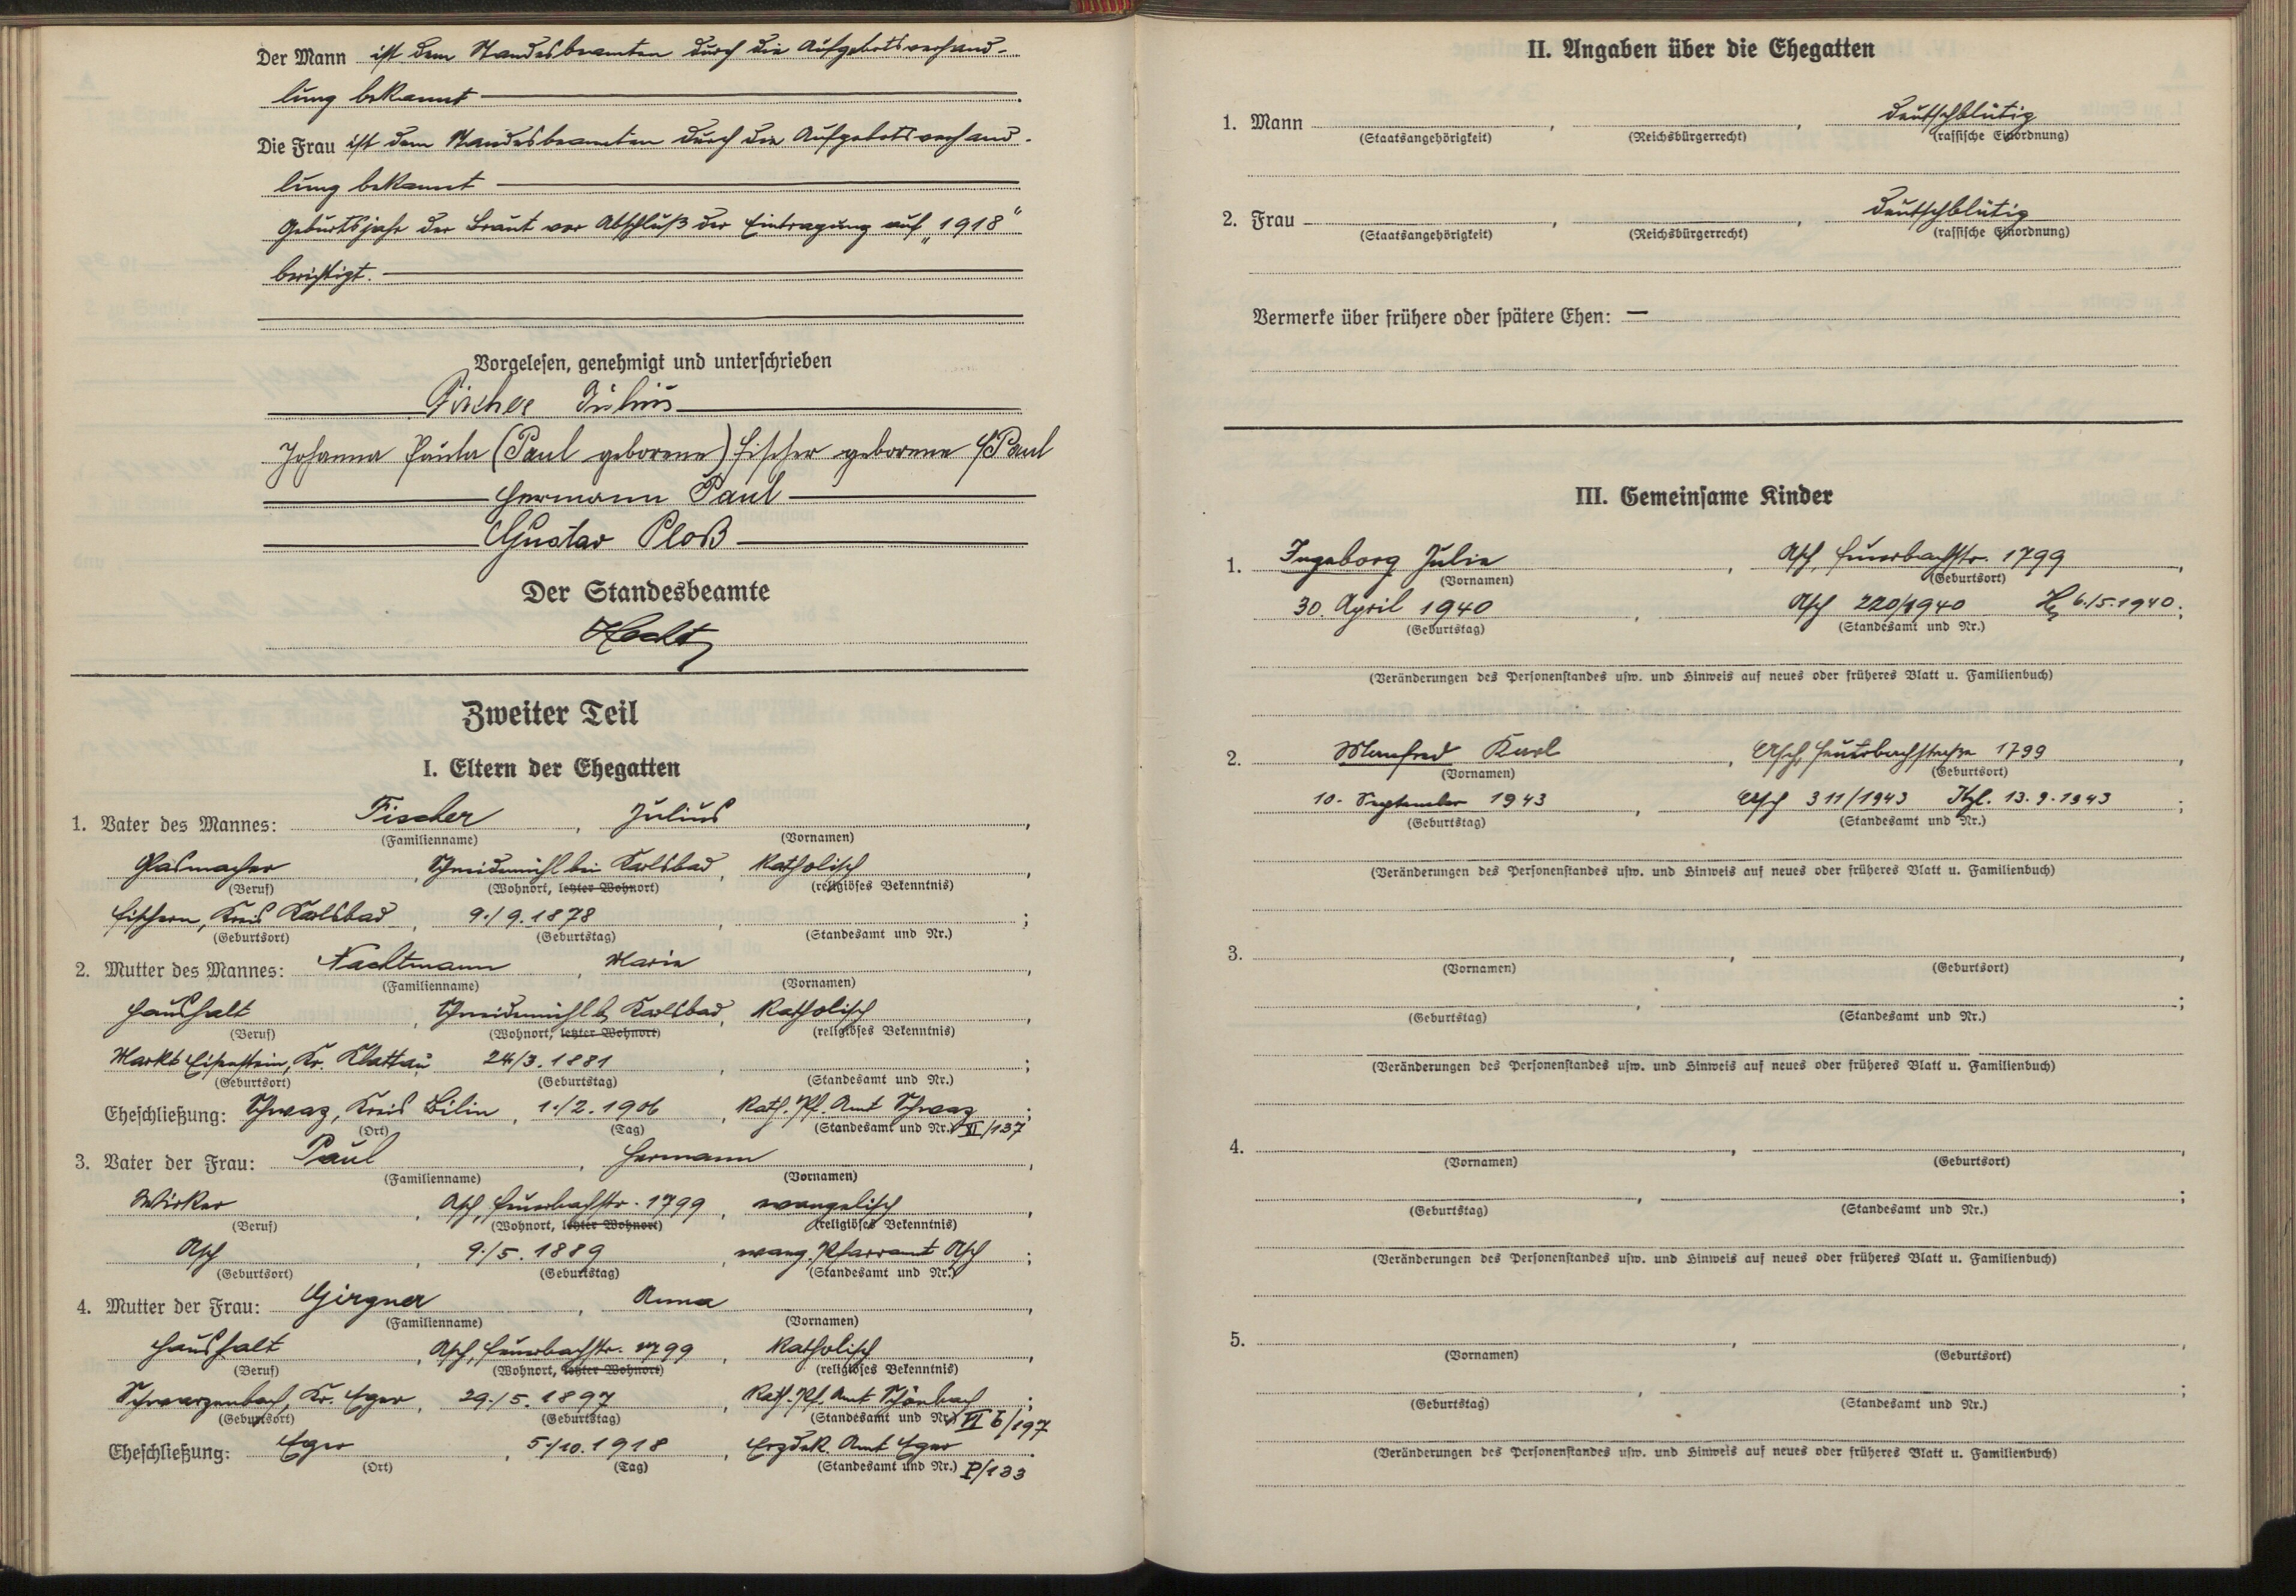 Der Mann ist dem Standesbeamten durch die Aufgebotsverhand-
lung bekannt
Die Frau ist dem Standesbeamten durch die Aufgebotsverhand-
lung bekannt
Geburtsjahr der Braut vor Abschluß der Eintragung auf „1918“
berichtigt.
Vorgelesen, genehmigt und unterschrieben
Fischer Julius
Johanna Paula (Paul geborene) Fischer geborene Paul
Hermann Paul
Gustav Ploß
Der Standesbeamte
Zweiter Teil
I. Eltern der Ehegatten
1. Vater des Mannes: Fischer, Julius,
(Familienname) (Vornamen)
Glasmacher, Schneidmühl bei Karlsbad, katholisch,
(Beruf) (Wohnort, letzter Wohnort) (religiöses Bekenntnis)
Fischern, Kreis Karlsbad, 9./9.1878, ;
(Geburtsort) (Geburtstag) (Standesamt und Nr.)
2. Mutter des Mannes: Nachtmann, Marie,
(Familienname) (Vornamen)
Haushalt, Schneidmühl b. Karlsbad, katholisch,
(Beruf) (Wohnort, letzter Wohnort) (religiöses Bekenntnis)
Markt Eisenstein, Kr. Klattau 24/3.1881, ;
(Geburtsort) (Geburtstag) (Standesamt und Nr.)
Eheschließung: Schwaz, Kreis Bilin, 1./2.1906, Kath. Pf. Amt Schwaz;
(Ort) (Tag) (Standesamt und Nr.) XI/137
3. Vater der Frau: Paul, Hermann,
(Familienname) (Vornamen)
Wirker, Asch, Feuerbachstr. 1799, evangelisch,
(Beruf) (Wohnort, letzter Wohnort) (religiöses Bekenntnis)
Asch, 9./5.1889, evang. Pfarramt Asch;
(Geburtsort) (Geburtstag) (Standesamt und Nr.)
4. Mutter der Frau: Girgner, Anna,
(Familienname) (Vornamen)
Haushalt, Asch, Feuerbachstr. 1799, katholisch,
(Beruf) (Wohnort, letzter Wohnort) (religiöses Bekenntnis)
Schwarzenbach, Kr. Eger, 29./5.1897, Kath. Pf. Amt Schönbach;
(Geburtsort) (Geburtstag) (Standesamt und Nr.) VI b/197
Eheschließung: Eger, 5./10.1918, Erzdek. Amt Eger
(Ort) (Tag) (Standesamt und Nr.) P/133
II. Angaben über die Ehegatten
1. Mann , , deutschblütig
(Staatsangehörigkeit) (Reichsbürgerrecht) (rassische Einordnung)
2. Frau , , deutschblütig
(Staatsangehörigkeit) (Reichsbürgerrecht) (rassische Einordnung)
Vermerke über frühere oder spätere Ehen: —
III. Gemeinsame Kinder
1. Ingeborg Julie, Asch, Feuerbachstr. 1799,
(Vornamen) (Geburtsort)
30. April 1940, Asch 220/1940 6./5.1940;
(Geburtstag) (Standesamt und Nr.)
(Veränderungen des Personenstandes usw. und Hinweis auf neues oder früheres Blatt u. Familienbuch)
2. Manfred Karl, Asch, Feuerbachstraße 1799,
(Vornamen) (Geburtsort)
10. September 1943, Asch 311/1943 13.9.1943;
(Geburtstag) (Standesamt und Nr.)
(Veränderungen des Personenstandes usw. und Hinweis auf neues oder früheres Blatt u. Familienbuch)
3. , ,
(Vornamen) (Geburtsort)
, ;
(Geburtstag) (Standesamt und Nr.)
(Veränderungen des Personenstandes usw. und Hinweis auf neues oder früheres Blatt u. Familienbuch)
4. , ,
(Vornamen) (Geburtsort)
, ;
(Geburtstag) (Standesamt und Nr.)
(Veränderungen des Personenstandes usw. und Hinweis auf neues oder früheres Blatt u. Familienbuch)
5. , ,
(Vornamen) (Geburtsort)
, ;
(Geburtstag) (Standesamt und Nr.)
(Veränderungen des Personenstandes usw. und Hinweis auf neues oder früheres Blatt u. Familienbuch)